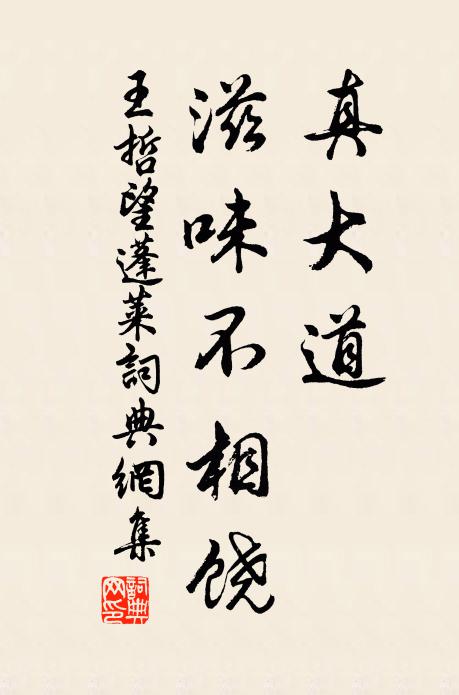 真大道
滋味不相饶
王哲望蓬莱詞典網集
詞典
网印